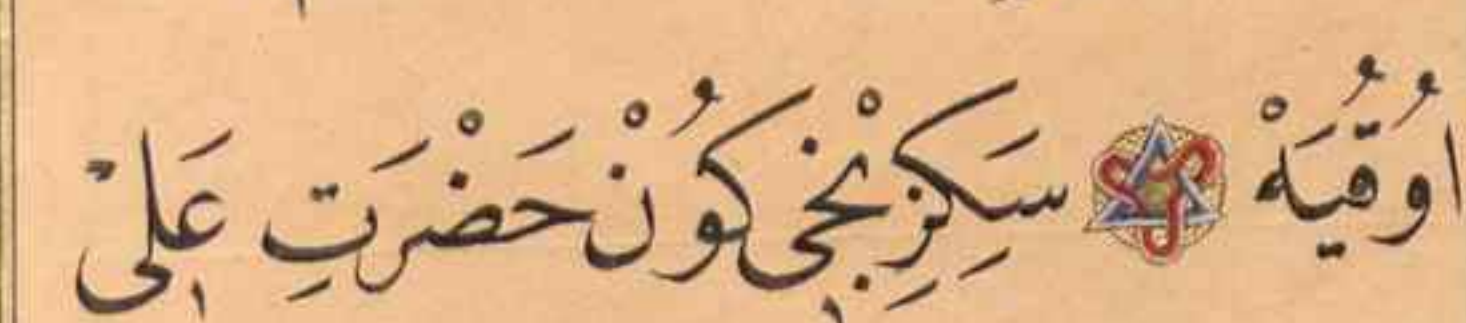 اُوقُيَهْ سَكِزِنْجِى كُونْ حَضْرَتِ عَلِىْ